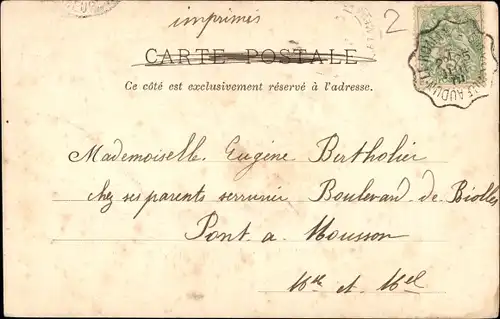 imprimés
2
CARTE POSTALE
Ce côté est exclusivement réservé à l'adresse.
Mademoiselle Eugène Bertholier
chez ses parents serrurier Boulevard de Biolles
Pont a Mousson
Mthe et Mel